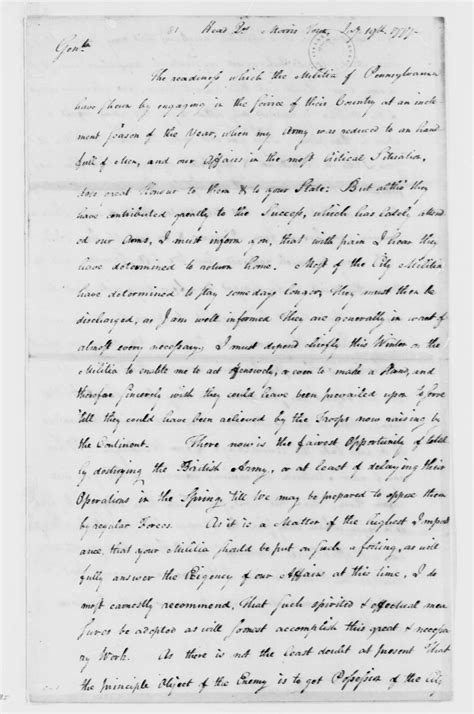 31 Head Qrs Morris Town Jany 19th 1777
Gentn
The readiness which the Militia of Pennsylvania
have shown by engaging in the service of their Country at an incle
ment season of the Year, when my Army was reduced to an hand
full of Men, and our Affairs in the most Critical Situation,
does great Honour to them & to your State: But altho' they
have contributed greatly to the Success, which has lately attend
ed our Arms, I must inform you, that with pain I hear they
have determined to return home. Most of the City Militia
have determined to stay some days longer, They must then be
discharged, as I am well informed They are generally in want of
almost every necessary. I must depend chiefly this Winter on the
Militia to enable me to act offensively, or even to make a Stand, and
therefore sincerely wish they could have been prevailed upon to serve
till they could have been relieved by the Troops now raising by
the Continent. There now is the fairest Opportunity of total
ly destroying the British Army, or at least of delaying their
Operations in the Spring, till We may be prepared to oppose them
by regular Forces. As it is a Matter of the highest Import
ance, that your Militia should be put on such a footing, as will
fully answer the Exigency of our Affairs at this time, I do
most earnestly recommend, That such spirited & effectual mea
sures be adopted as will soonest accomplish this great & necessa
ry Work. As there is not the least doubt at present That
the principle Object of the Enemy is to get Possession of the City